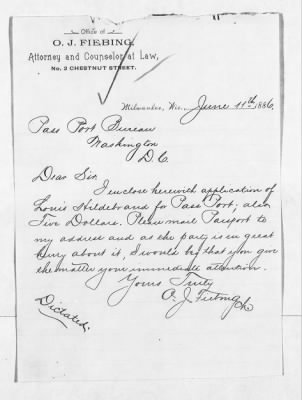 Office of
O. J. FIEBING,
Attorney and Counselor at Law,
No. 2 CHESTNUT STREET.
Milwaukee, Wis., June 11th 1886.
Pass Port Bureau
Washington
D C.
Dear Sir.
I enclose herewith application of
Louis Hildebrand for Pass Port, also
Five Dollars. Please mail Passport to
my address and as the party is in great
hury about it, I would beg that you give
the matter your immediate attention.
Yours Truly
O. J. Fiebing
Dictated.